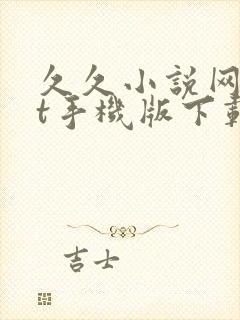 久久小説网
t手機版下載
吉士